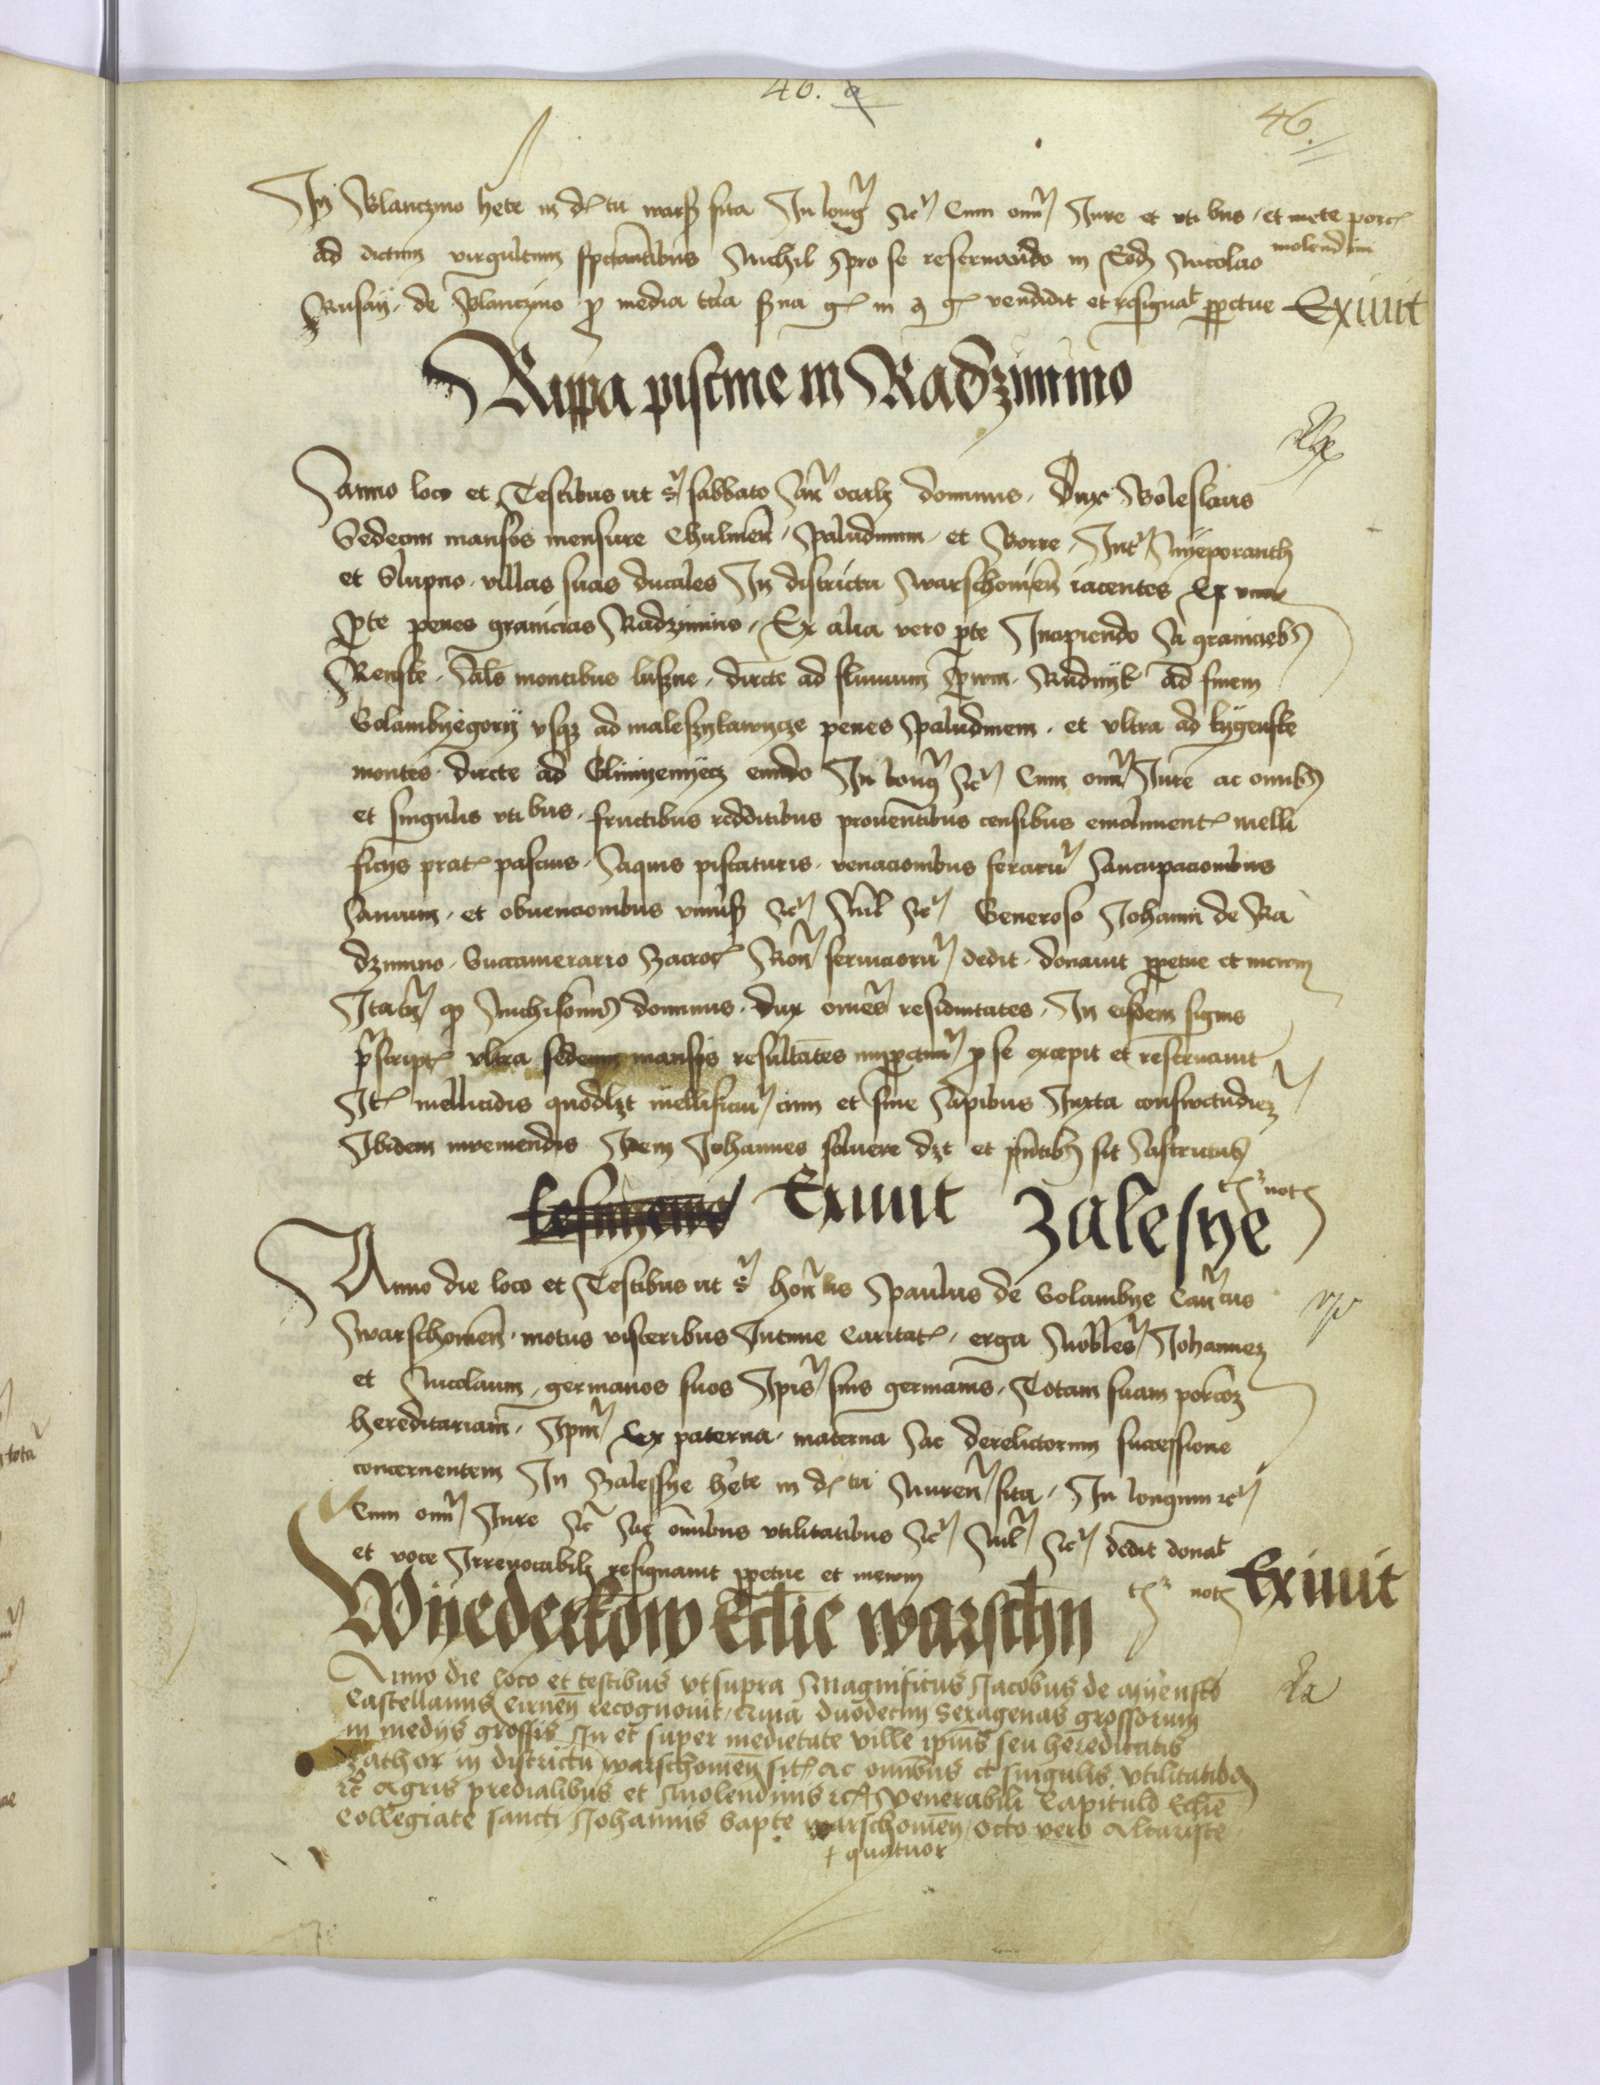 46. a
46.
In Blanczino hete in d tu warss sita In long etc Cum omni Jure et uti bus et mete porc
molendini
ad dictum virgultum spectantibus Nichil pro se reservando in Eod Nicolao
Rusaij de Blanczino p media tcia sxna g in q g vendidit et resignat ppetue Exiuit
Rippa piscine in Radzimino
Anno loco et Testibus ut s sabbato an oculi dominus Dux Boleslaus
Sedecim mansos mensure Chulmen paludinum et Borre Int Nyeporanth
et Slupno villas suas ducales In districtu warschouien iacentes Ex una
pte penes granicias Radzimino Ex alia vero pte Incipiendo a graniciebus
Renske als montibus lussne dircte ad fluuium prim Rudnyk ad finem
Golambyegory usq ad maleszykawycze penes paludinem et vltra ad lygenske
montes dircte ad Glinyenyecz eundo In long etc Cum omni Jure ac omnibus
et singulis uti bus fructibus redditibus prouentibus censibus emoliment melli
ficijs prat pascuis aquis piscaturis venacionibus ferarum aucupacionibus
auium et obuencionibus vniuss etc Nul etc Generoso Johanni de Ra
dzimino Succamerario Zacroc Ron seruiciorum dedit donauit ppetue et in ewm
Itatn q Nichilomin dominus dux omnes residuitates In eisdem signis
pscript vltra sedecim mansos resultates inppetuum p se excepit et reseruauit
It mellicidis quodlzt mellificiu cum et sine apibus Juxta consuetudiez
Ibidem inveniendis Idem Johannes soluere dzt et pntib sit astrictus
t not
Exiuit Zalesye
Anno die loco et Testibus ut s hon lis Paulus de Golambye Can cus
warschouien motus visceribus Intime Caritat erga Nobles Johannez
et Nicolaum germanos suos Ipis suis germanis Totam suam porcoz
hereditariam Ipm Ex paterna materna ac derelictorum successione
concernentem In Zalessye hete in d tu Nuren sita In longum etc
Cum omni Jure etc ac omnibus vtilitatibus etc Nul etc dedit donat
et voce Irreuocabili resignauit ppetue et in ewm
t not Exiuit
Wyederkow Ecclie warschn
Anno die loco et testibus vt supra Magnificus Jacobus de
Castellanus Cirnen recognouit duodecim sexagenas grossorum
in medijs grossis In et super medietate ville ipius seu hereditatis
zathor in districtu warschouien sit ac omnibus et singulis vtilitatib
etc Agris predialibus et Molendinis Venerabili Capitulo Eclie
Collegiate sancti Johannis bapte warschouien octo vero Altariste
+ quatuor